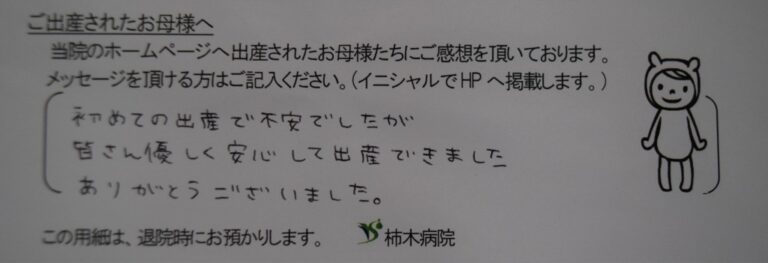 ご出産されたお母様へ
当院のホームページへ出産されたお母様たちにご感想を頂いております。
メッセージを頂ける方はご記入ください。(イニシャルでHPへ掲載します。)
初めての出産で不安でしたが
皆さん優しく安心して出産できました
ありがとうございました。
この用紙は、退院時にお預かりします。 柿木病院